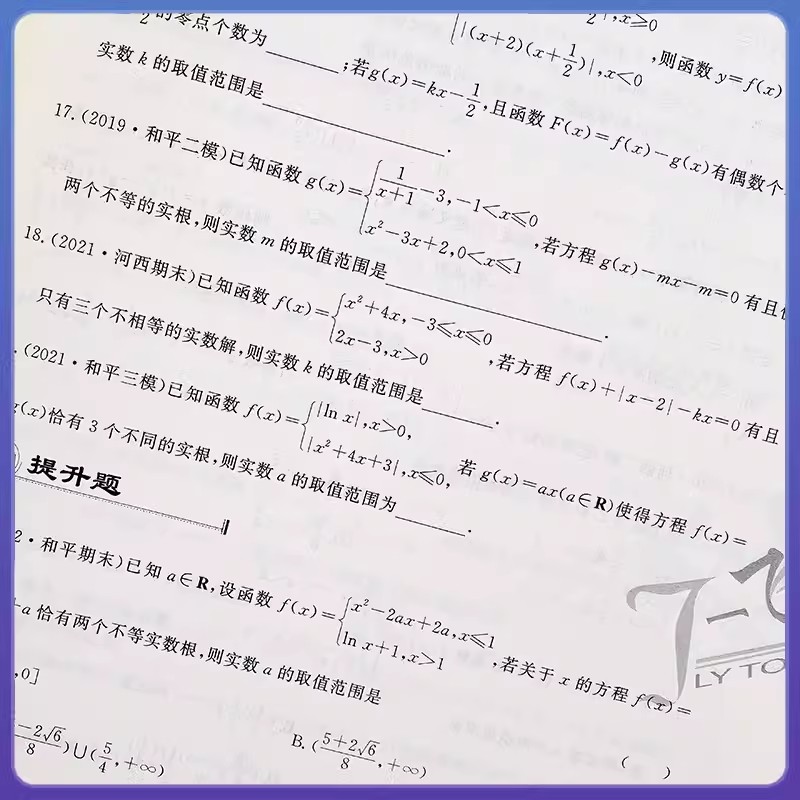 2|,x≥0
|(x+2)(x+1/2)|,x<0 ,则函数 y=f(x)
2 的零点个数为______;若g(x)=kx-1/2,且函数 F(x)=f(x)-g(x)有偶数个
实数 k 的取值范围是______.
17.(2019·和平二模)已知函数 g(x)={1/(x+1)-3,-1<x≤0
x²-3x+2,0<x≤1 ,若方程 g(x)-mx-m=0 有且
两个不等的实根,则实数 m 的取值范围是______.
18.(2021·河西期末)已知函数 f(x)={x²+4x,-3≤x≤0
2x-3,x>0 ,若方程 f(x)+|x-2|-kx=0 有且
只有三个不相等的实数解,则实数 k 的取值范围是______.
.(2021·和平三模)已知函数 f(x)={|ln x|,x>0,
|x²+4x+3|,x≤0, 若 g(x)=ax(a∈R)使得方程 f(x)=
g(x)恰有 3 个不同的实根,则实数 a 的取值范围为______.
提升题
2·和平期末)已知 a∈R,设函数 f(x)={x²-2ax+2a,x≤1
ln x+1,x>1 ,若关于 x 的方程 f(x)=
-a 恰有两个不等实数根,则实数 a 的取值范围是
( )
,0]
-2√6/8)∪(5/4,+∞)
B.(5+2√6/8,+∞)
LY TO